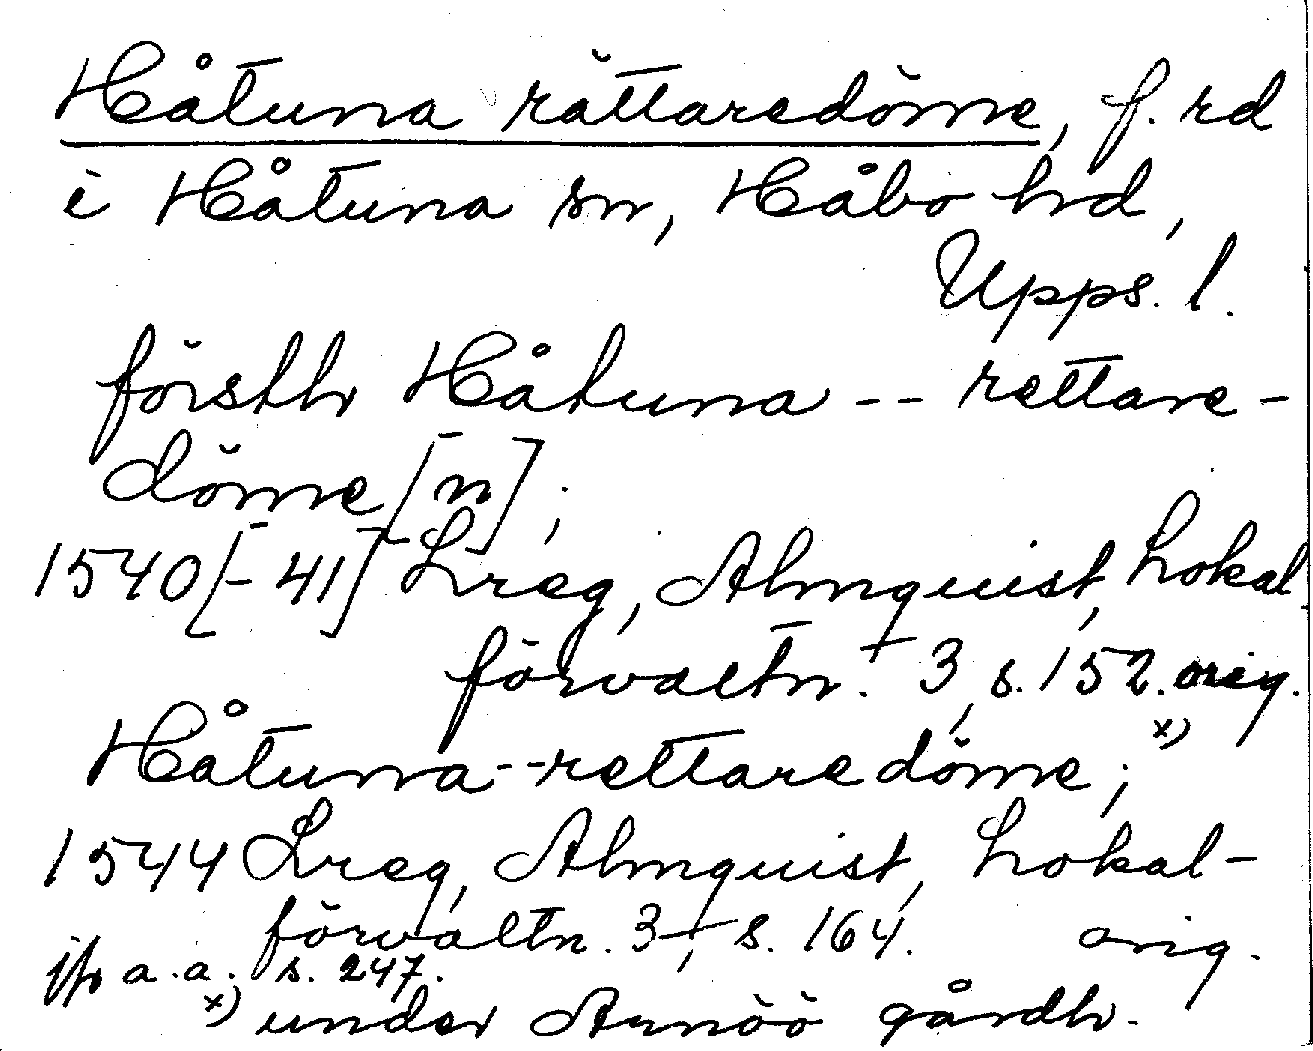 Håtuna rättaredöme, f. rd
i Håtuna sn, Håbo hd,
Upps. l.
försthr Håtuna -- rettare-
döme[n];
1540[-41] Lreg, Almquist, Lokal
förvaltn. 3, s. 152. orig.
x)
Håtuna--rettaredöme;
1544 Lreg, Almquist, Lokal-
förvaltn. 3, s. 164. orig.
jfr a.a. s. 247.
x) under Arnöö gårdh.